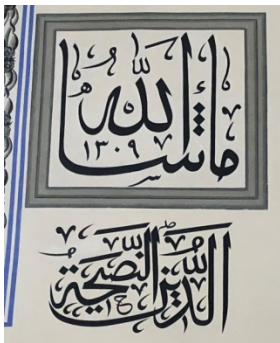 ما شاء الله
١٣٠٩
الدين النصيحة